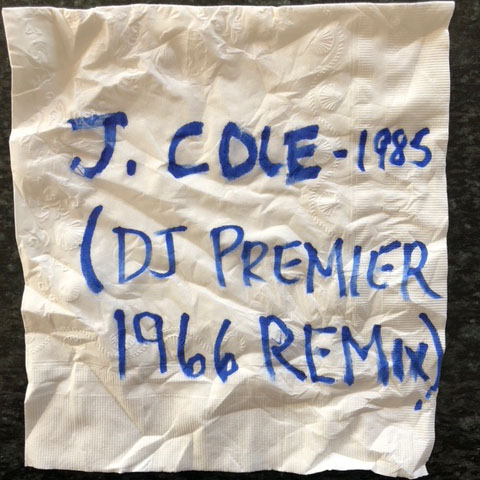 J. COLE - 1985
(DJ PREMIER
1966 REMIX)